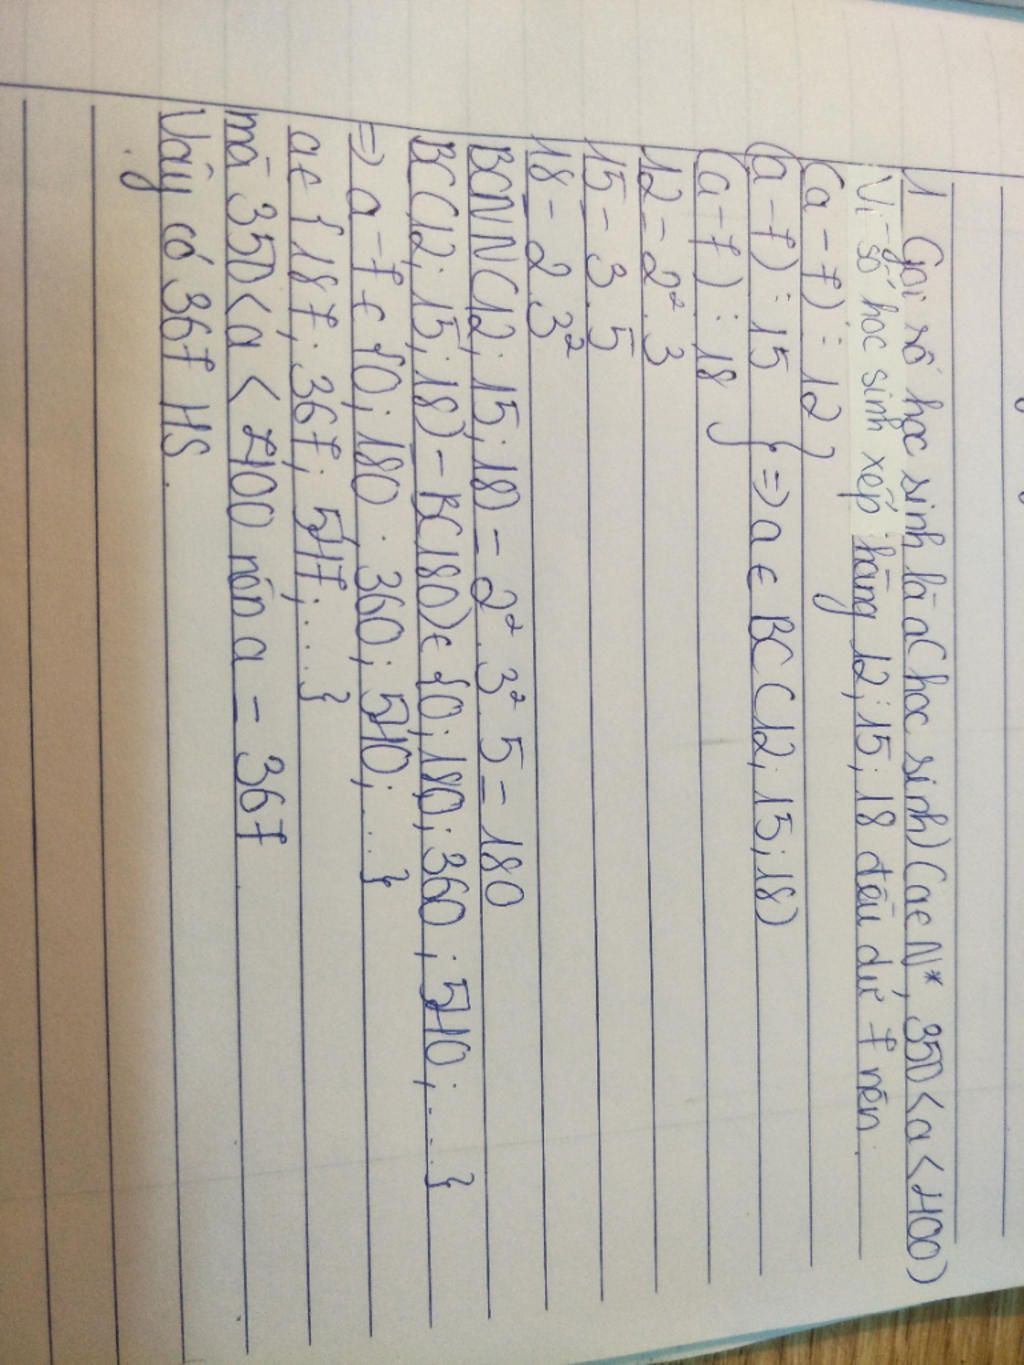 1 Gọi số học sinh là a( học sinh) (a∈N*, 350<a<400)
Vì số học sinh xếp hàng 12; 15; 18 đều dư 7 nên
(a-7) ⋮ 12
(a-7) ⋮ 15 } => a ∈ BC (12; 15; 18)
(a-7) ⋮ 18
12 = 2².3
15 = 3.5
18 = 2.3²
BCNN(12; 15; 18 = 2².3².5 = 180
BC(12; 15; 18) = BC(180)∈ {0; 180; 360; 540; ...}
=> a-7∈ {0; 180; 360; 540; ...}
a∈ {187; 367; 547; ...}
mà 350<a<400 nên a = 367
Vậy có 367 HS.